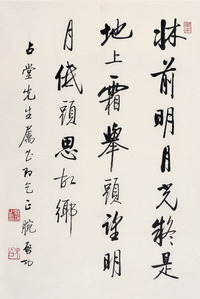 牀前明月光疑是
地上霜舉頭望明
月低頭思故鄉
占堂先生屬书即乞正腕 啓功